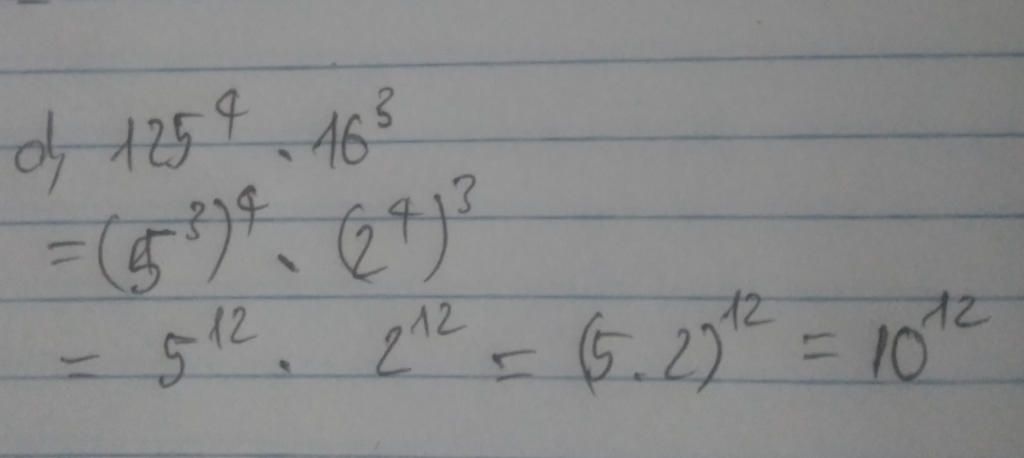 d, 125⁴ . 16³
= (5³)⁴ . (2⁴)³
= 5¹² . 2¹² = (5.2)¹² = 10¹²